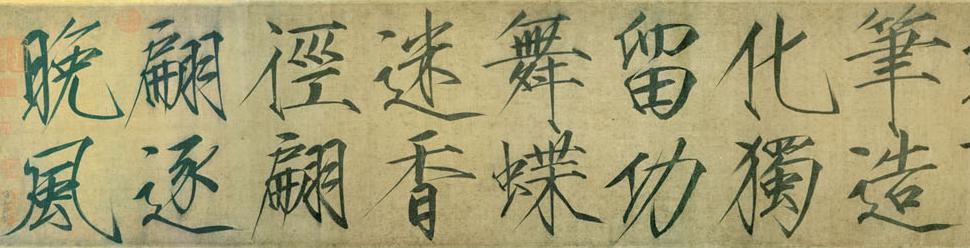 筆造
化獨
留功
舞蝶
迷香
徑翩
翩逐
晚風